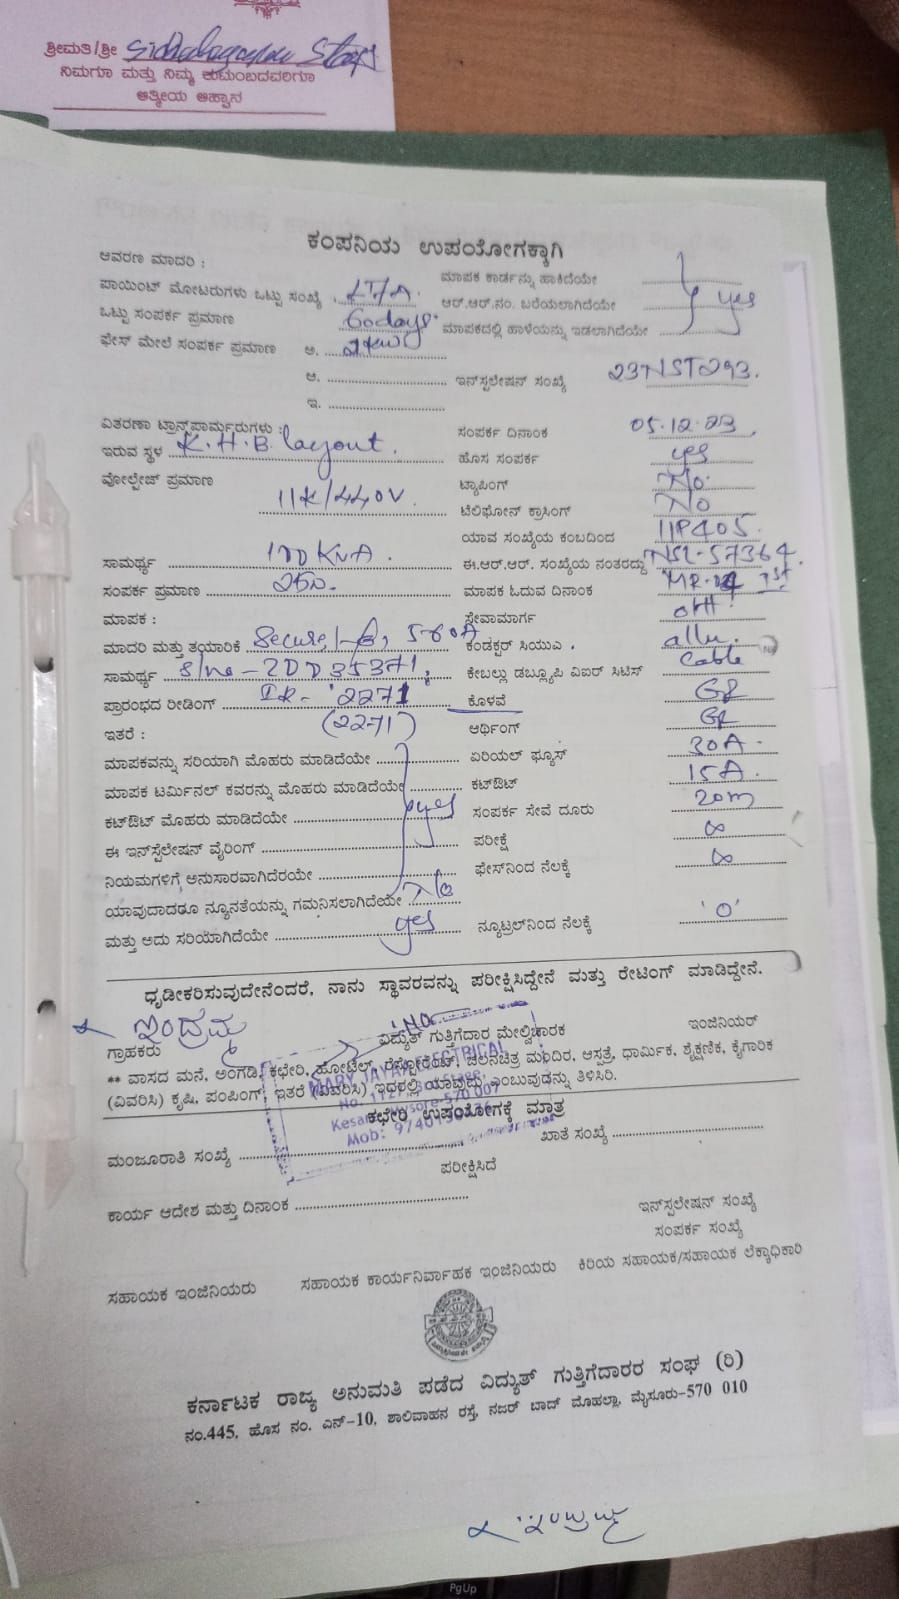 ಶ್ರೀಮತಿ/ಶ್ರೀ
ನಿಮಗೂ ಮತ್ತು ನಿಮ್ಮ ಕುಟುಂಬದವರಿಗೂ
ಆತ್ಮೀಯ ಆಹ್ವಾನ
ಕಂಪನಿಯ ಉಪಯೋಗಕ್ಕಾಗಿ
ಆವರಣ ಮಾದರಿ :
ಮಾಪಕ ಕಾರ್ಡನ್ನು ಹಾಕಿದೆಯೇ
ಪಾಯಿಂಟ್ ಮೋಟರುಗಳು ಒಟ್ಟು ಸಂಖ್ಯೆ LT/A. ಆರ್.ಆರ್.ನಂ. ಬರೆಯಲಾಗಿದೆಯೇ yes
ಒಟ್ಟು ಸಂಪರ್ಕ ಪ್ರಮಾಣ 60days ಮಾಪಕದಲ್ಲಿ ಹಾಳೆಯನ್ನು ಇಡಲಾಗಿದೆಯೇ
ಫೇಸ್ ಮೇಲೆ ಸಂಪರ್ಕ ಪ್ರಮಾಣ ಅ.
ಆ. ಇನ್ಸ್ಟಲೇಷನ್ ಸಂಖ್ಯೆ 23NST293.
ಇ.
ವಿತರಣಾ ಟ್ರಾನ್ಸ್‌ಫಾರ್ಮರುಗಳು : ಸಂಪರ್ಕ ದಿನಾಂಕ 05.12.23
ಇರುವ ಸ್ಥಳ K.H.B. layout. ಹೊಸ ಸಂಪರ್ಕ yes
ವೋಲ್ಟೇಜ್ ಪ್ರಮಾಣ 11K/440V ಟ್ಯಾಪಿಂಗ್ No
ಟೆಲಿಫೋನ್ ಕ್ರಾಸಿಂಗ್ No
ಯಾವ ಸಂಖ್ಯೆಯ ಕಂಬದಿಂದ 11P405.
ಸಾಮರ್ಥ್ಯ 100 KVA. ಈ.ಆರ್.ಆರ್. ಸಂಖ್ಯೆಯ ನಂತರದ್ದು NSL-57364
ಸಂಪರ್ಕ ಪ್ರಮಾಣ ಮಾಪಕ ಓದುವ ದಿನಾಂಕ
ಮಾಪಕ : ಸೇವಾಮಾರ್ಗ OHH
ಮಾದರಿ ಮತ್ತು ತಯಾರಿಕೆ Secure, ಕಂಡಕ್ಟರ್ ಸಿಯುಎ . allu.
ಸಾಮರ್ಥ್ಯ S/no - 2DD35371, ಕೇಬಲ್ಲು ಡಬ್ಲ್ಯೂಪಿ ವಿಐರ್ ಸಿಟಿಸ್ Cable
ಪ್ರಾರಂಭದ ರೀಡಿಂಗ್ IR- 2271 ಕೊಳವೆ
ಇತರೆ : (2271) ಆರ್ಥಿಂಗ್
ಮಾಪಕವನ್ನು ಸರಿಯಾಗಿ ಮೊಹರು ಮಾಡಿದೆಯೇ ಏರಿಯಲ್ ಫ್ಯೂಸ್ 30A.
ಮಾಪಕ ಟರ್ಮಿನಲ್ ಕವರನ್ನು ಮೊಹರು ಮಾಡಿದೆಯೇ ಕಟ್‌ಔಟ್ 15A.
ಕಟ್‌ಔಟ್ ಮೊಹರು ಮಾಡಿದೆಯೇ yes ಸಂಪರ್ಕ ಸೇವೆ ದೂರು 20m
ಈ ಇನ್ಸ್ಟಲೇಷನ್ ವೈರಿಂಗ್ ಪರೀಕ್ಷೆ ∞
ನಿಯಮಗಳಿಗೆ ಅನುಸಾರವಾಗಿದೆರಯೇ ಫೇಸ್‌ನಿಂದ ನೆಲಕ್ಕೆ ∞
ಯಾವುದಾದರೂ ನ್ಯೂನತೆಯನ್ನು ಗಮನಿಸಲಾಗಿದೆಯೇ No
ಮತ್ತು ಅದು ಸರಿಯಾಗಿದೆಯೇ yes ನ್ಯೂಟ್ರಲ್‌ನಿಂದ ನೆಲಕ್ಕೆ '0'
ಧೃಡೀಕರಿಸುವುದೇನೆಂದರೆ, ನಾನು ಸ್ಥಾವರವನ್ನು ಪರೀಕ್ಷಿಸಿದ್ದೇನೆ ಮತ್ತು ರೇಟಿಂಗ್ ಮಾಡಿದ್ದೇನೆ.
ಇಂದ್ರಮ್ಮ
ಗ್ರಾಹಕರು ವಿದ್ಯುತ್ ಗುತ್ತಿಗೆದಾರ ಮೇಲ್ವಿಚಾರಕ ಇಂಜಿನಿಯರ್
** ವಾಸದ ಮನೆ, ಅಂಗಡಿ, ಕಛೇರಿ, ಹೋಟೆಲ್, ರೆಸ್ಟೋರೆಂಟ್, ಚಲನಚಿತ್ರ ಮಂದಿರ, ಆಸ್ಪತ್ರೆ, ಧಾರ್ಮಿಕ, ಶೈಕ್ಷಣಿಕ, ಕೈಗಾರಿಕೆ
(ವಿವರಿಸಿ) ಕೃಷಿ, ಪಂಪಿಂಗ್, ಇತರೆ (ವಿವರಿಸಿ) ಇದರಲ್ಲಿ ಯಾವುದು ಎಂಬುವುದನ್ನು ತಿಳಿಸಿರಿ.
ಕಛೇರಿ ಉಪಯೋಗಕ್ಕೆ ಮಾತ್ರ
ಮಂಜೂರಾತಿ ಸಂಖ್ಯೆ ಖಾತೆ ಸಂಖ್ಯೆ
ಪರೀಕ್ಷಿಸಿದೆ
ಕಾರ್ಯ ಆದೇಶ ಮತ್ತು ದಿನಾಂಕ
ಇನ್ಸ್ಟಲೇಷನ್ ಸಂಖ್ಯೆ
ಸಂಪರ್ಕ ಸಂಖ್ಯೆ
ಸಹಾಯಕ ಇಂಜಿನಿಯರು ಸಹಾಯಕ ಕಾರ್ಯನಿರ್ವಾಹಕ ಇಂಜಿನಿಯರು ಕಿರಿಯ ಸಹಾಯಕ/ಸಹಾಯಕ ಲೆಕ್ಕಾಧಿಕಾರಿ
ಕರ್ನಾಟಕ ರಾಜ್ಯ ಅನುಮತಿ ಪಡೆದ ವಿದ್ಯುತ್ ಗುತ್ತಿಗೆದಾರರ ಸಂಘ (ರಿ)
ನಂ.445, ಹೊಸ ನಂ. ಎನ್-10, ಶಾಲಿವಾಹನ ರಸ್ತೆ, ನಜರ್ ಬಾದ್ ಮೊಹಲ್ಲಾ, ಮೈಸೂರು-570 010
PgUp